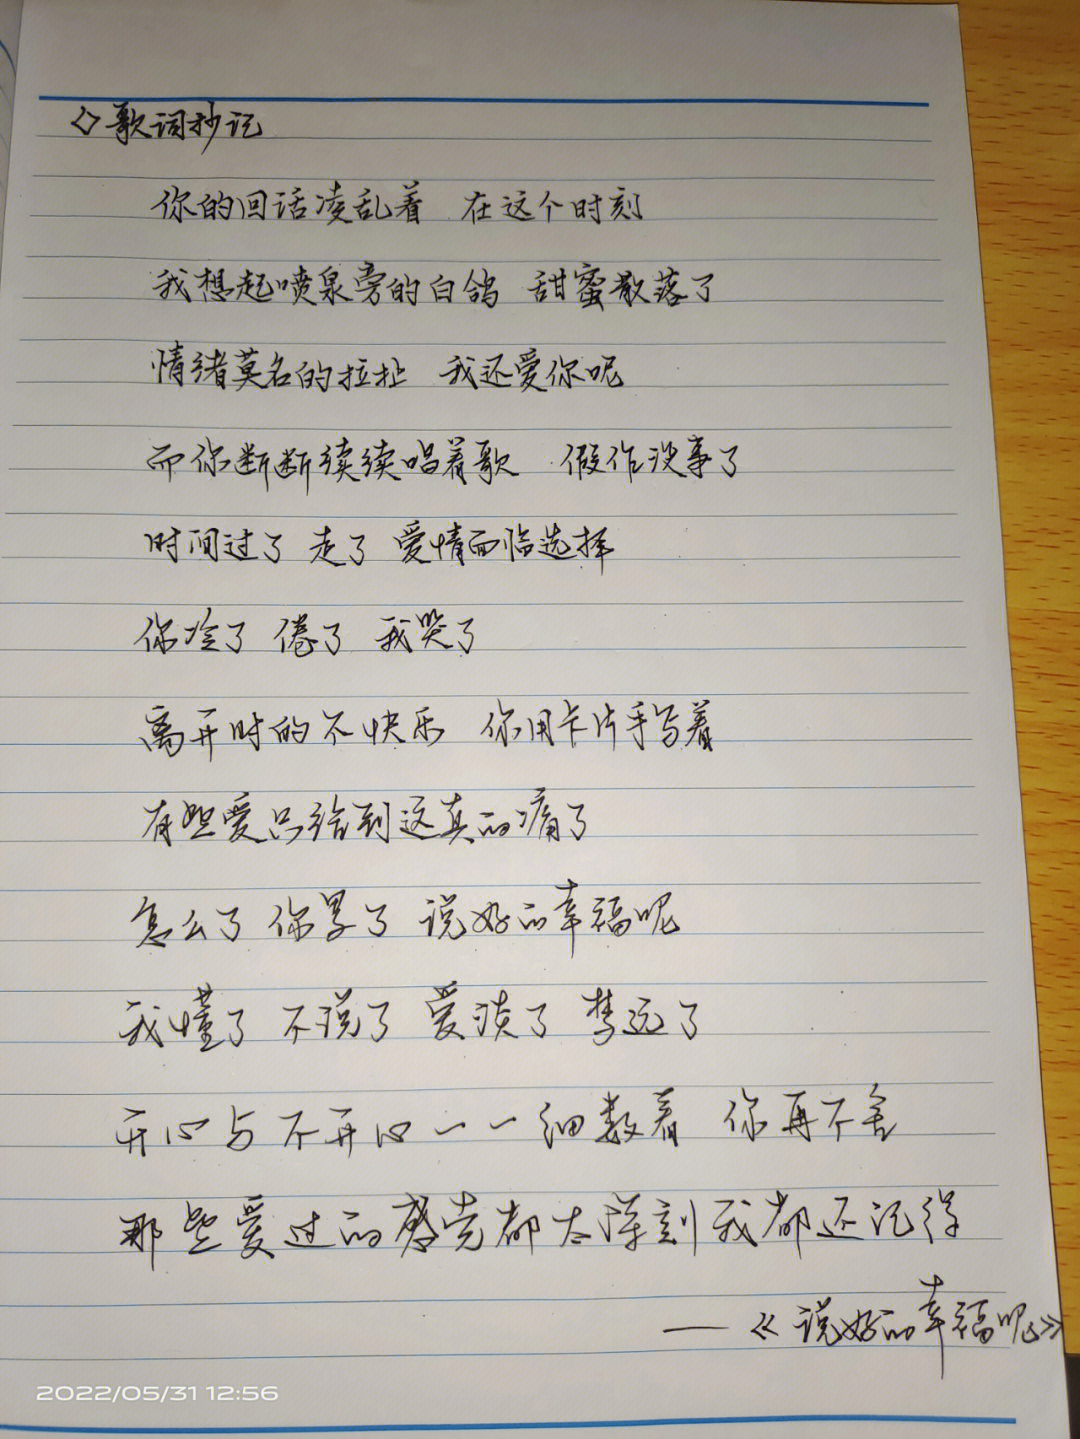 ◇歌词抄记
你的回话凌乱着 在这个时刻
我想起喷泉旁的白鸽 甜蜜散落了
情绪莫名的拉扯 我还爱你呢
而你断断续续唱着歌 假作没事了
时间过了 走了 爱情面临选择
你冷了 倦了 我哭了
离开时的不快乐 你用卡片手写着
有些爱只给到这真的痛了
怎么了 你累了 说好的幸福呢
我懂了 不说了 爱淡了 梦远了
开心与不开心一一细数着 你再不舍
那些爱过的感觉都太深刻我都还记得
——《说好的幸福呢》
2022/05/31 12:56